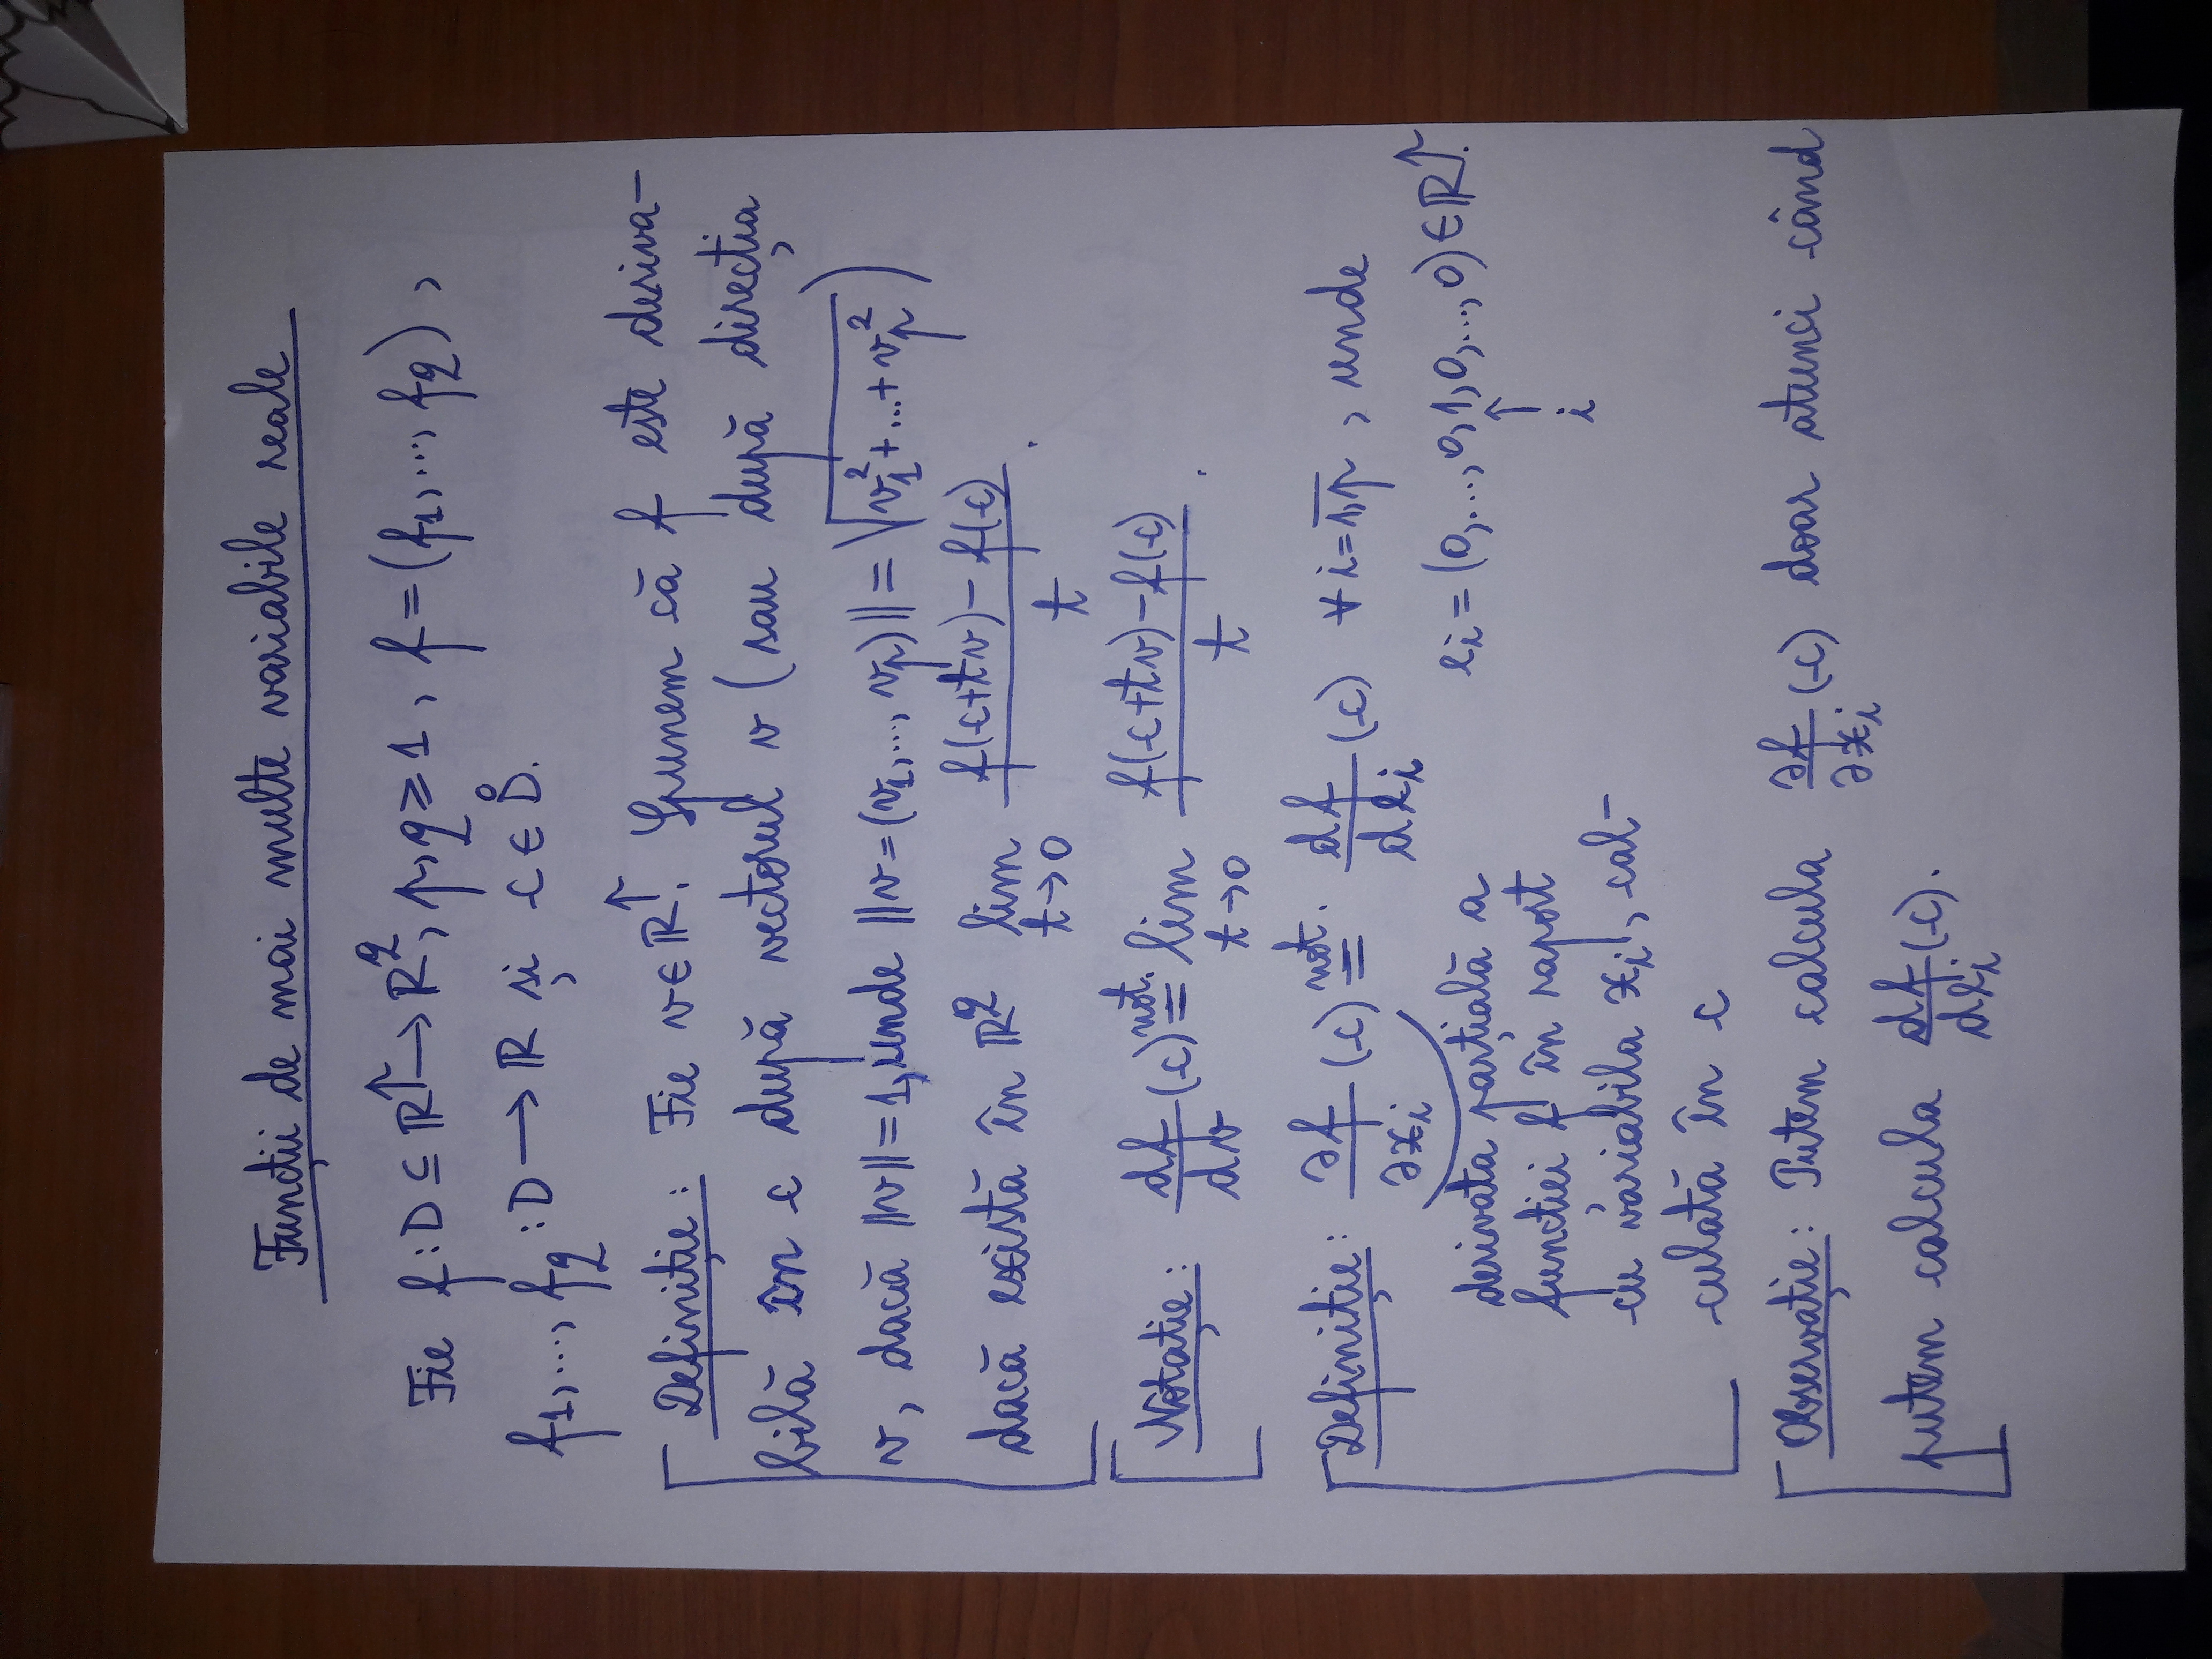 Funcții de mai multe variabile reale
Fie f : D ⊆ ℝ^p → ℝ^q, p, q ⩾ 1, f = (f₁, ..., f_q),
f₁, ..., f_q : D → ℝ și c ∈ D̊.
Definiție: Fie v ∈ ℝ^p. Spunem că f este deriva-
bilă în c după vectorul v (sau după direcția
v, dacă ||v|| = 1, unde ||v = (v₁, ..., v_p)|| = √(v₁² + ... + v_p²))
dacă există în ℝ^q lim_{t→0} (f(c+tv) - f(c))/t.
Notație: df/dv (c) not.= lim_{t→0} (f(c+tv) - f(c))/t.
Definiție: ∂f/∂x_i (c) not.= df/de_i (c) ∀ i = \overline{1,p}, unde
e_i = (0, ..., 0, 1, 0, ..., 0) ∈ ℝ^p.
↑
i
derivata parțială a
funcției f în raport
cu variabila x_i, cal-
culată în c
Observație: Putem calcula ∂f/∂x_i (c) doar atunci când
putem calcula df/de_i (c).